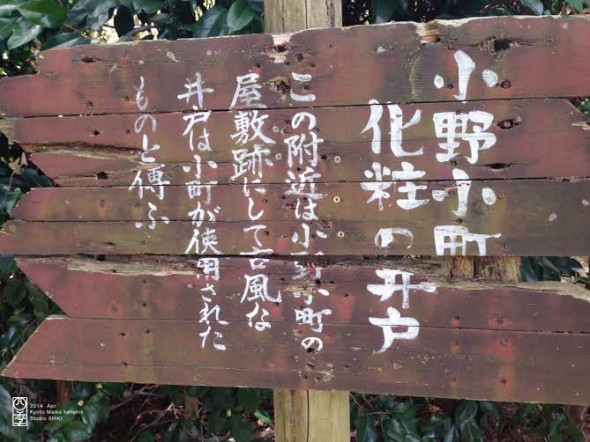 小野小町
化粧の井戸
この附近は小野小町の
屋敷跡にして古風な
井君は小町が使用された
ものと傳ふ
四季
2014 Apr
Kyoto Maiko henshin
Studio SHIKI